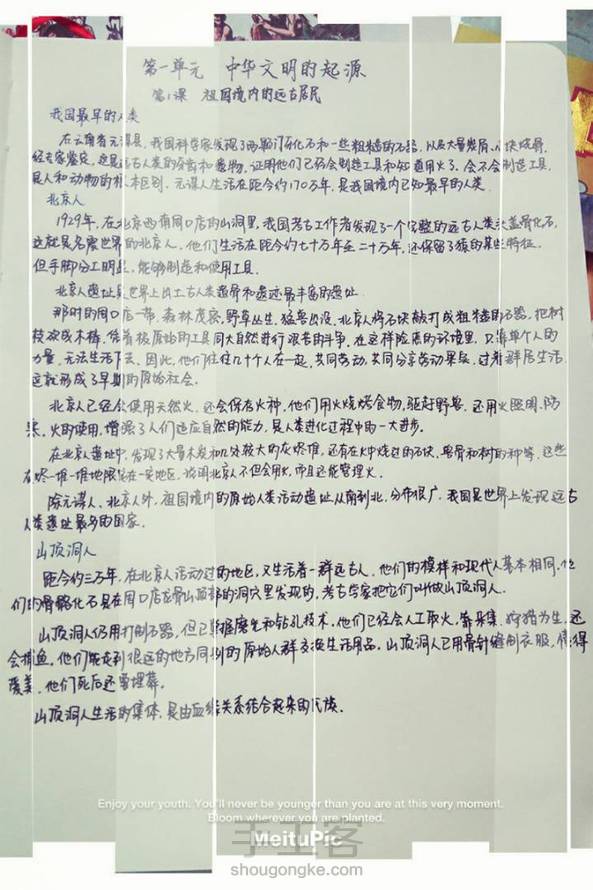 第一单元 中华文明的起源
第1课 祖国境内的远古居民
我国最早的人类
在云南省元谋县,我国科学家发现了两颗门牙化石和一些粗糙的石器,以及大量炭屑、小块烧骨,
经专家鉴定,这是远古人类的牙齿和遗物,证明他们已经会制造工具和知道用火了。会不会制造工具,
是人和动物的根本区别。元谋人生活在距今约170万年,是我国境内已知最早的人类。
北京人
1929年,在北京西南周口店的山洞里,我国考古工作者发现了一个完整的远古人类头盖骨化石,
这就是名震世界的北京人。他们生活在距今约七十万年至二十万年,还保留了猿的某些特征,
但手脚分工明显,能够制造和使用工具。
北京人遗址是世界上出土古人类遗骨和遗迹最丰富的遗址
那时的周口店一带,森林茂密,野草丛生,猛兽出没。北京人将石块敲打成粗糙的石器,把树
枝砍成木棒,凭着极原始的工具同大自然进行艰苦的斗争。在这样险恶的环境里,只靠单个人的
力量,无法生活下去,因此,他们往往几十个人在一起,共同劳动,共同分享劳动果实,过着群居生活,
这就形成了早期的原始社会。
北京人已经会使用天然火,还会保存火种,他们用火烧烤食物,驱赶野兽,还用火照明、防
寒。火的使用,增强了人们适应自然的能力,是人类进化过程中的一大进步。
在北京人遗址中,发现了大量木炭和几处较大的灰烬堆,还有在火中烧过的石块、兽骨和树的种等,这些
灰烬一堆一堆地限定在一定地区,说明北京人不但会用火,而且还能管理火。
除元谋人、北京人外,祖国境内的原始人类活动遗址从南到北,分布很广,我国是世界上发现远古
人类遗址最多的国家。
山顶洞人
距今约三万年,在北京人活动过的地区,又生活着一群远古人,他们的模样和现代人基本相同,他
们的骨骼化石是在周口店龙骨山顶部的洞穴里发现的,考古学家把它们叫做山顶洞人。
山顶洞人仍用打制石器,但已掌握磨光和钻孔技术,他们已经会人工取火,靠采集、狩猎为生,还
会捕鱼,他们能走到很远的地方同别的原始人群交换生活用品。山顶洞人已用骨针缝制衣服,懂得
爱美,他们死后还要埋葬。
山顶洞人生活的集体,是由血缘关系结合起来的氏族。
Enjoy your youth. You'll never be younger than you are at this very moment.
Bloom wherever you are planted.
MeituPic
手工客
shougongke.com